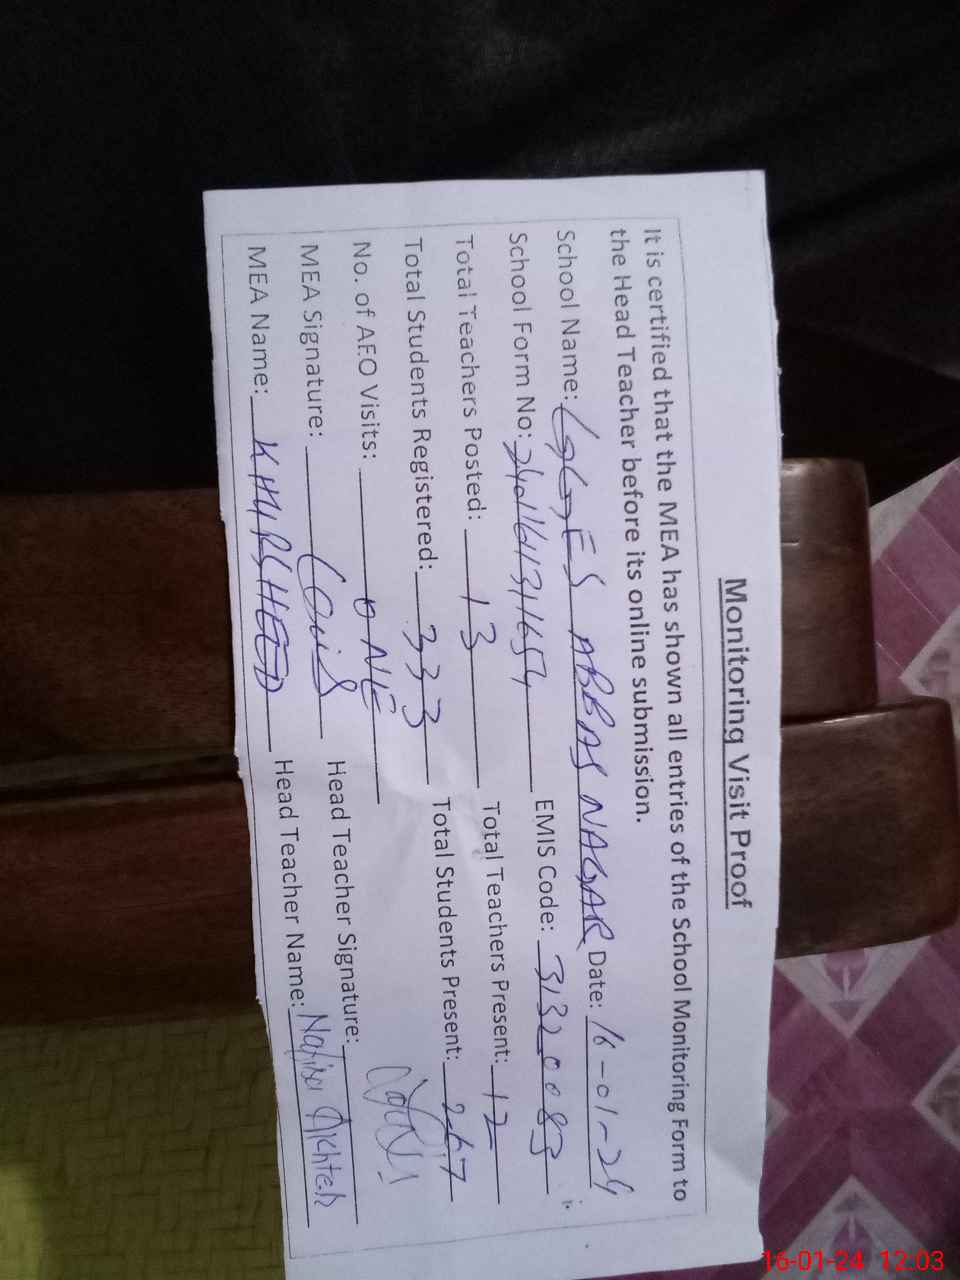 Monitoring Visit Proof
It is certified that the MEA has shown all entries of the School Monitoring Form to
the Head Teacher before its online submission.
School Name: GGES ABBAS NAGAR Date: 16-01-24
School Form No: EMIS Code: 31320083
Total Teachers Posted: 13 Total Teachers Present: 12
Total Students Registered: 333 Total Students Present: 267
No. of AEO Visits: ONE
MEA Signature: Head Teacher Signature:
MEA Name: KHURSHEED Head Teacher Name:
16-01-24 12:03